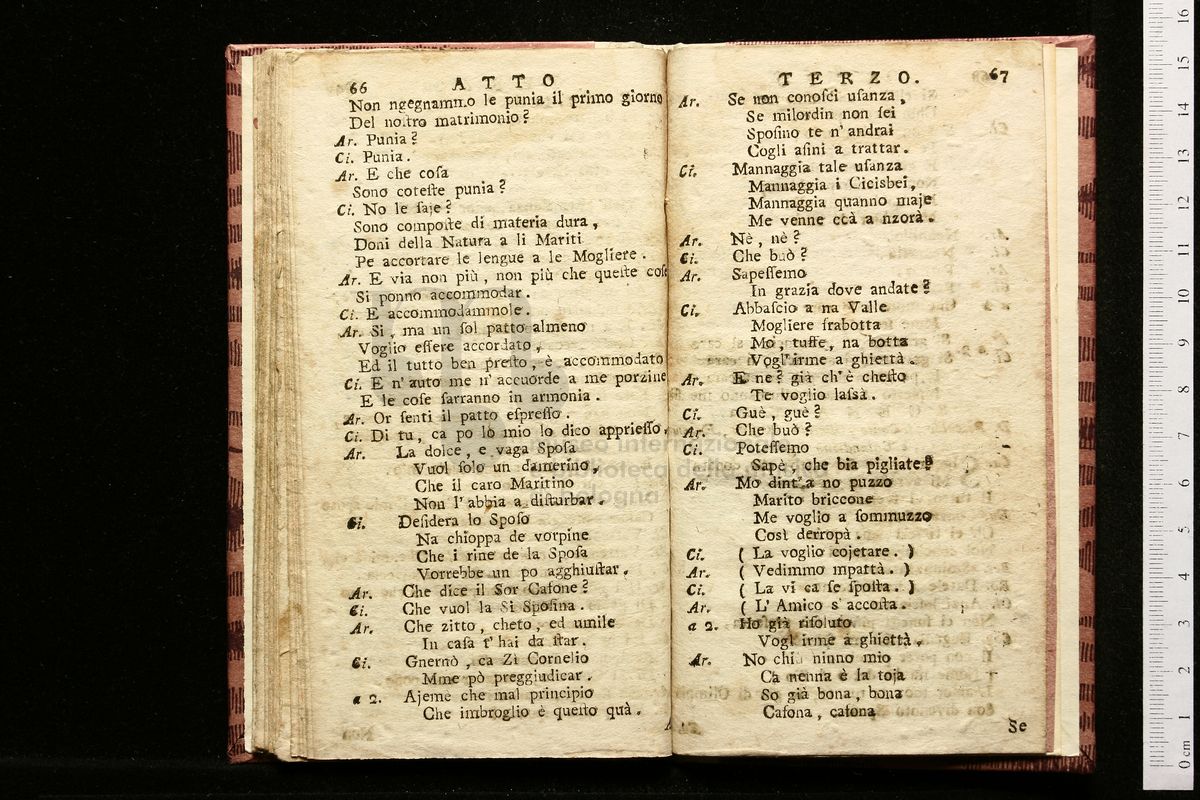 66 ATTO
Non ngegnammo le punia il primo giorno
Del nostro matrimonio?
Ar. Punia?
Ci. Punia.
Ar. E che cosa
Sono coteste punia?
Ci. No le saje?
Sono composte di materia dura,
Doni della Natura a li Mariti
Pe accortare le lengue a le Mogliere.
Ar. E via non più, non più che queste cose
Si ponno accommodar.
Ci. E accommodammole.
Ar. Si, ma un sol patto almeno
Voglio essere accordato,
Ed il tutto ben presto, è accommodato
Ci. E n' auto me n' accuorde a me porzine
E le cose sarranno in armonia.
Ar. Or senti il patto espresso.
Ci. Di tu, ca po lo mio lo dico appriesso.
Ar. La dolce, e vaga Sposa
Vuol solo un damerino,
Che il caro Maritino
Non l' abbia a disturbar.
Ci. Desidera lo Sposo
Na chioppa de vorpine
Che i rine de la Sposa
Vorrebbe un po agghiustar.
Ar. Che dice il Sor Casone?
Ci. Che vuol la Si Sposina.
Ar. Che zitto, cheto, ed umile
In casa t' hai da star.
Ci. Gnernò, ca Zi Cornelio
Mme pò preggiudicar.
a 2. Ajeme che mal principio
Che imbroglio è questo quà.
TERZO. 67
Ar. Se non conosci usanza,
Se milordin non sei
Sposino te n' andrai
Cogli asini a trattar.
Ci. Mannaggia tale usanza
Mannaggia i Cicisbei,
Mannaggia quanno maje
Me venne ccà a nzorà.
Ar. Nè, nè?
Ci. Che buò?
Ar. Sapessemo
In grazia dove andate?
Ci. Abbascio a na Valle
Mogliere frabotta
Mo, tuffe, na botta
Vogl'irme a ghiettà.
Ar. E ne? già ch' è chesto
Te voglio lassà.
Ci. Guè, guè?
Ar. Che buò?
Ci. Potessemo
Sapè, che bia pigliate?
Ar. Mo dint' a no puzzo
Marito briccone
Me voglio a sommuzzo
Così derropà.
Ci. ( La voglio cojetare. )
Ar. ( Vedimmo mpattà. )
Ci. ( La vi ca se sposta. )
Ar. ( L' Amico s' accosta.
a 2. Ho già risoluto
Vogl' irme a ghiettà.
Ar. No chiù ninno mio
Cà nenna è la toja
So già bona, bona
Cafona, cafona
Se